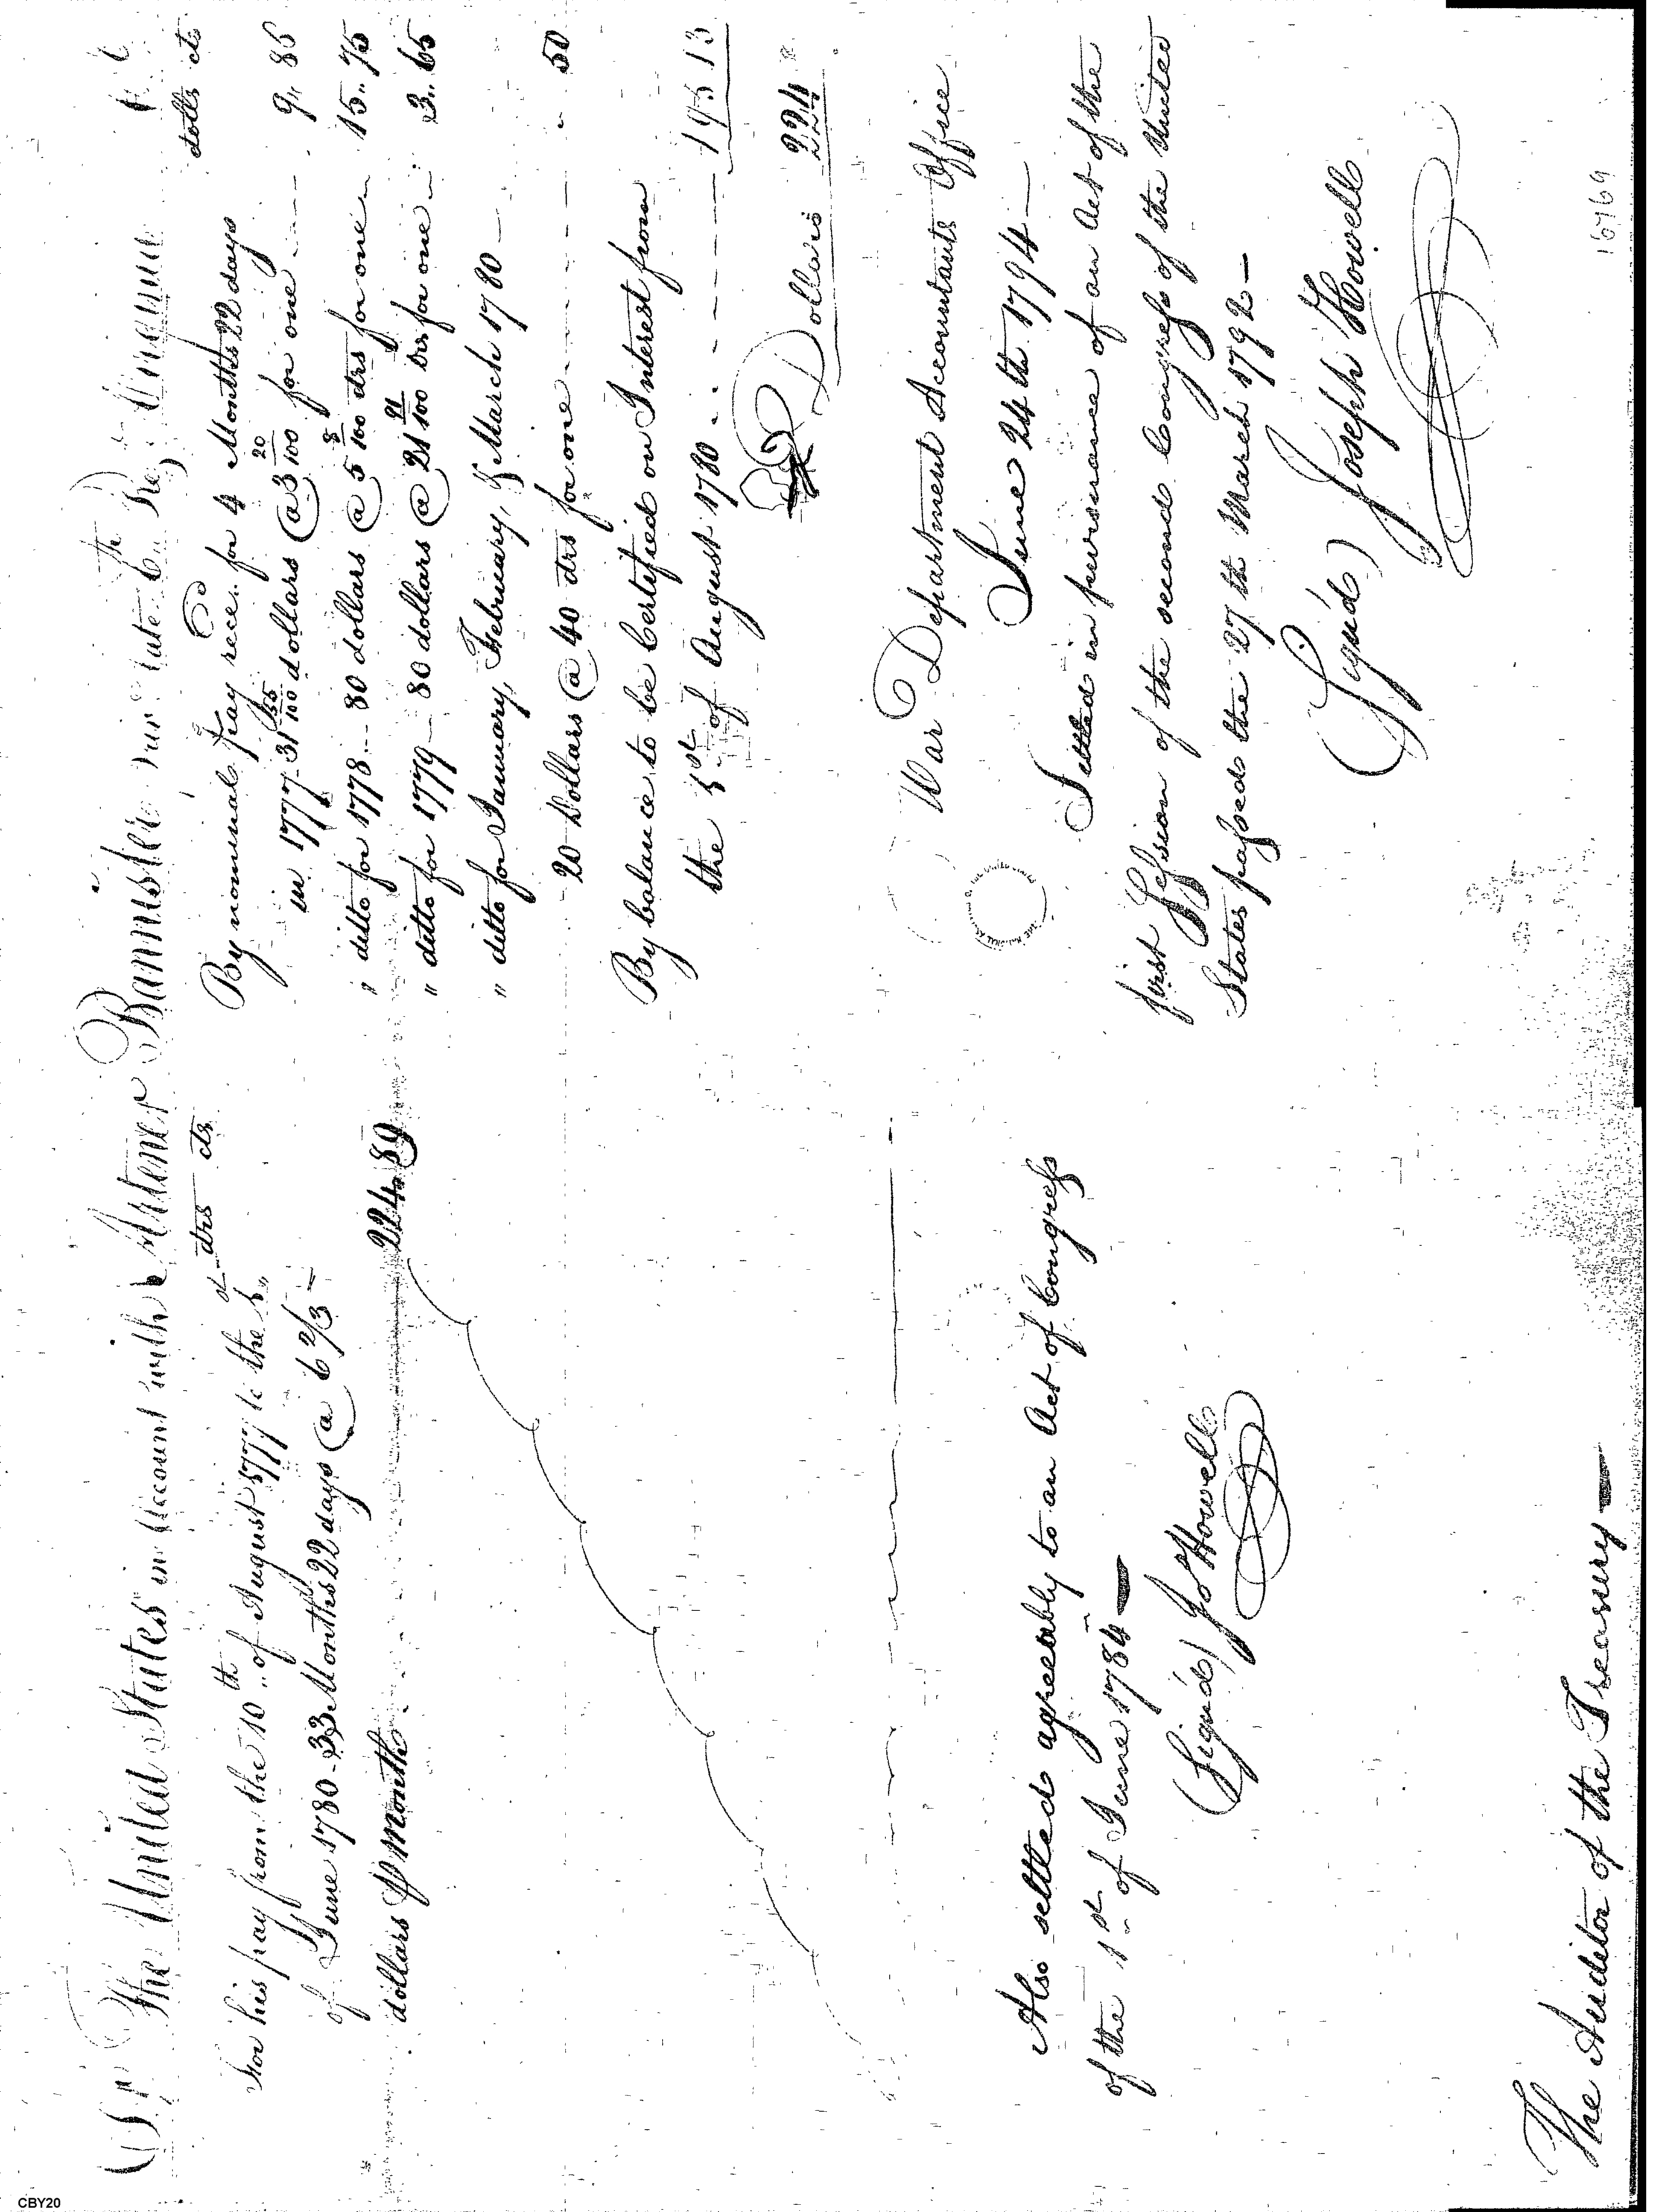 Dr The United States in Account with Artener Bannister late 6th Regt
drs cts
For his pay from the 10th of August 1777 to the 1st
of June 1780 - 33 Months 22 days @ 6 2/3
dollars ⅌ Month
224.89
Cr
dolls cts
By nominal pay reced. for 4 Months 22 days
in 1777 31 55/100 dollars @ 3 20/100 for one 9,, 86
" ditto for 1778 - 80 dollars @ 5 8/100 drs for one 15.. 75
" ditto for 1779 - 80 dollars @ 21 91/100 drs for one 3.. 65
" ditto for January, February, & March 1780 -
20 Dollars @ 40 drs for one 50
By balance to be Certified on Interest from
the 1st of August 1780 195 13
Dollars 224
War Department Accountants Office
June 24th 1794 -
Settled in pursuance of an Act of the
first Session of the second Congress of the United
States passed the 27th March 1792 -
(Sign'd) Joseph Howell
Also settled agreeably to an Act of Congress
of the 1st of June 1784 -
(Sign'd) Jo Howell
The Auditor of the Treasury -
16769
CBY20